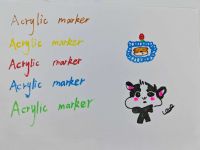 Acrylic marker
Acrylic marker
Acrylic marker
Acrylic marker
Acrylic marker